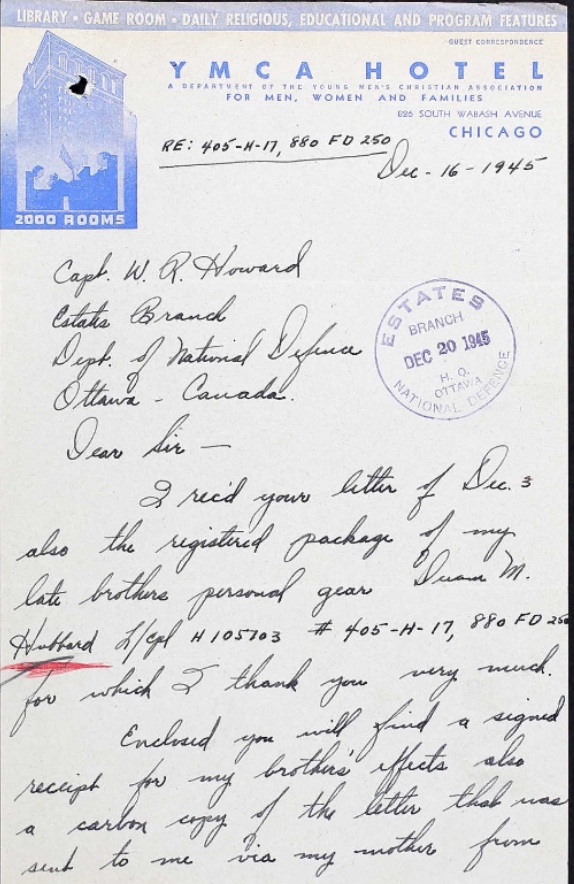 LIBRARY • GAME ROOM • DAILY RELIGIOUS, EDUCATIONAL AND PROGRAM FEATURES
GUEST CORRESPONDENCE
YMCA HOTEL
A DEPARTMENT OF THE YOUNG MEN'S CHRISTIAN ASSOCIATION
FOR MEN, WOMEN AND FAMILIES
826 SOUTH WABASH AVENUE
CHICAGO
2000 ROOMS
RE: 405-H-17, 880 FD 250
Dec - 16 - 1945
Capt. W. R. Howard
Estates Branch
Dept. of National Defence
Ottawa - Canada.
ESTATES
BRANCH
DEC 20 1945
H. Q.
OTTAWA
NATIONAL DEFENCE
Dear Sir —
I rec'd your letter of Dec. 3
also the registered package of my
late brothers personal gear Duane M.
Hubbard L/cpl H105703 # 405-H-17, 880 FD 250
for which I thank you very much.
Enclosed you will find a signed
receipt for my brothers' effects also
a carbon copy of the letter that was
sent to me via my mother from